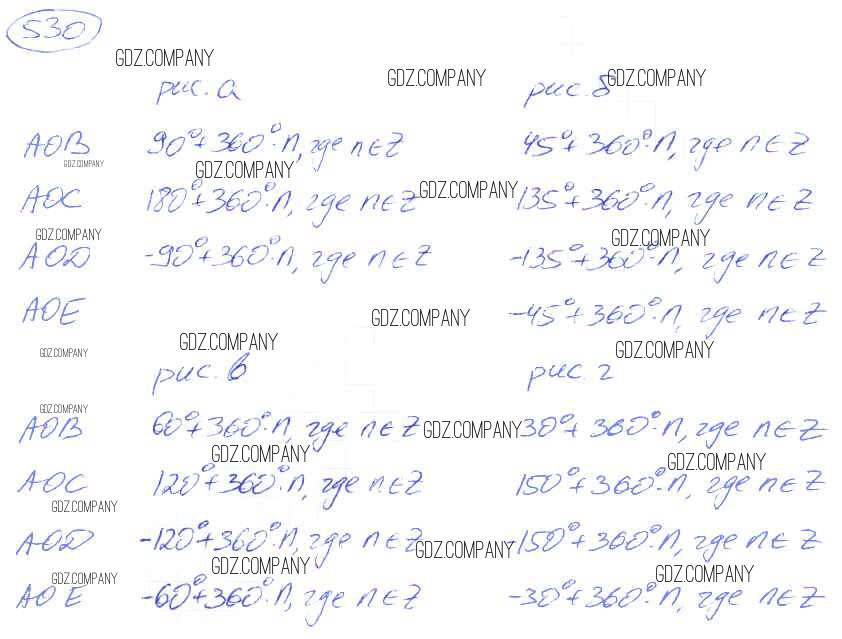 530
GDZ.COMPANY
рис. а GDZ.COMPANY рис. б GDZ.COMPANY
AOB 90°+360°·n, где n∈Z 45°+360°·n, где n∈Z
GDZ.COMPANY GDZ.COMPANY
AOC 180°+360°·n, где n∈Z GDZ.COMPANY 135°+360°·n, где n∈Z
GDZ.COMPANY GDZ.COMPANY
AOD -90°+360°·n, где n∈Z -135°+360°·n, где n∈Z
AOE -45°+360°·n, где n∈Z
GDZ.COMPANY
GDZ.COMPANY GDZ.COMPANY GDZ.COMPANY
рис. в рис. г
GDZ.COMPANY
AOB 60°+360°·n, где n∈Z GDZ.COMPANY 30°+360°·n, где n∈Z
GDZ.COMPANY GDZ.COMPANY
AOC 120°+360°·n, где n∈Z 150°+360°·n, где n∈Z
GDZ.COMPANY
AOD -120°+360°·n, где n∈Z GDZ.COMPANY -150°+360°·n, где n∈Z
GDZ.COMPANY GDZ.COMPANY GDZ.COMPANY
AOE -60°+360°·n, где n∈Z -30°+360°·n, где n∈Z